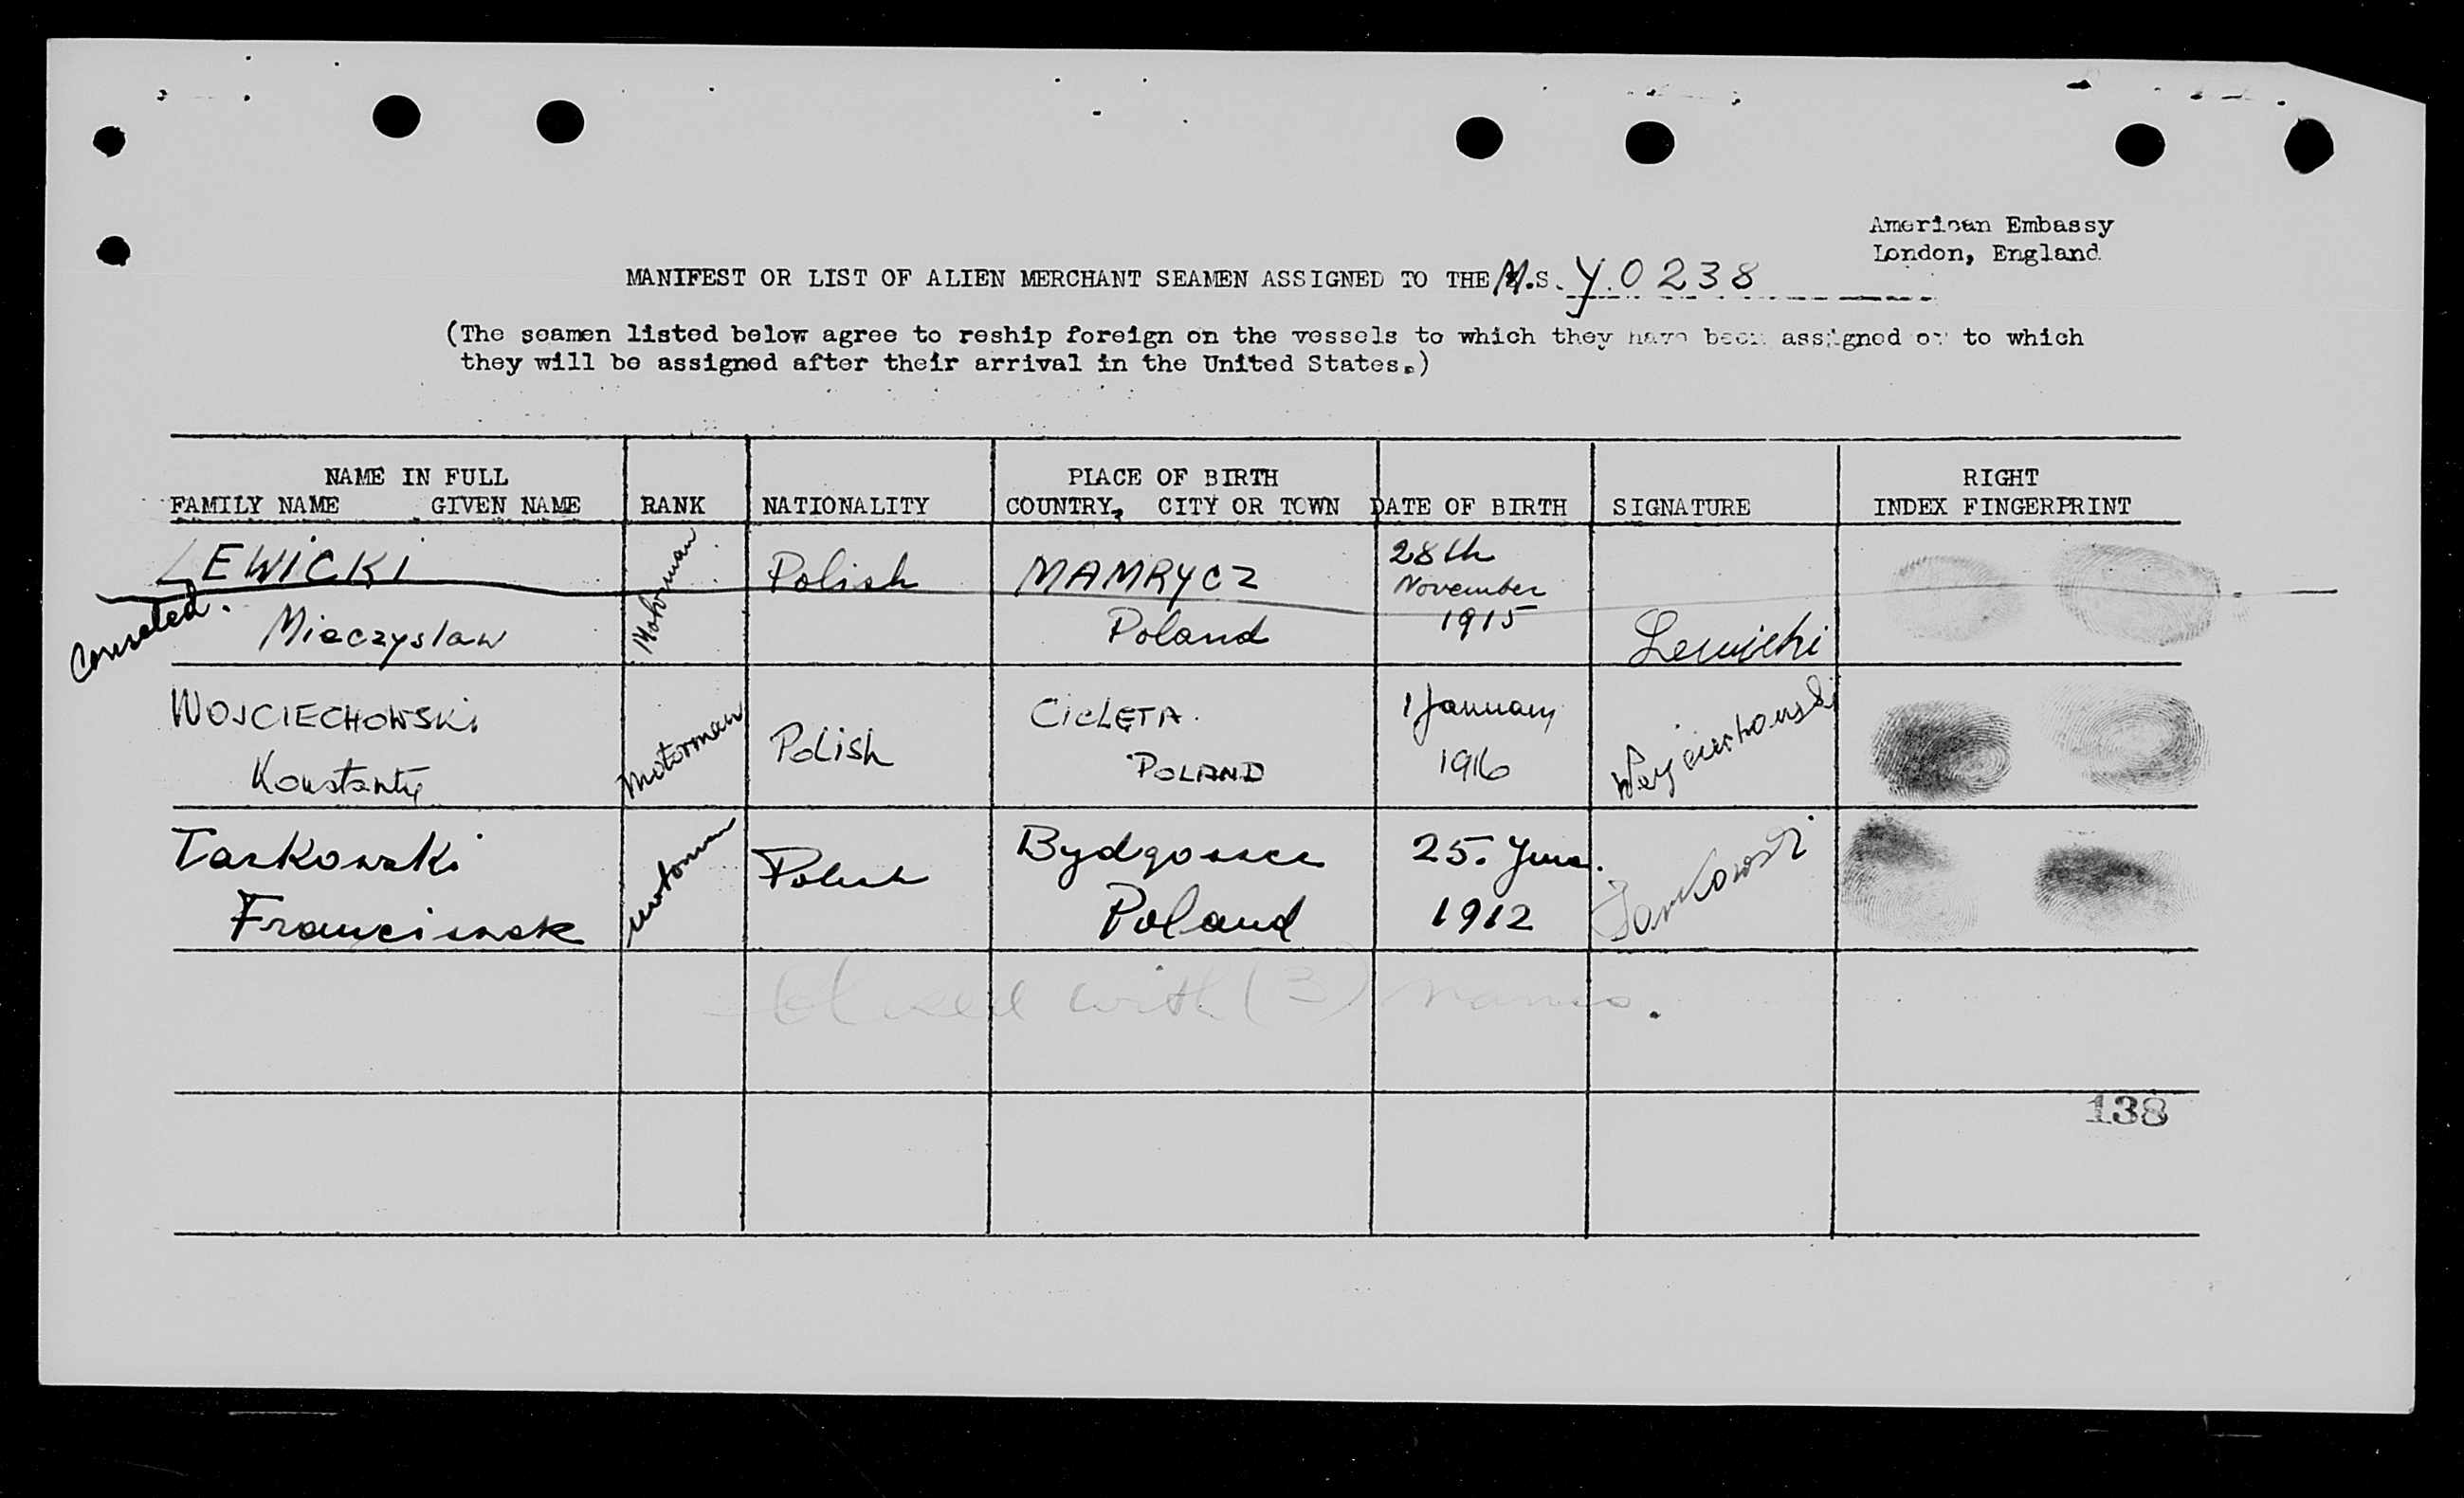 American Embassy
London, England
MANIFEST OR LIST OF ALIEN MERCHANT SEAMEN ASSIGNED TO THE M.S. Y.0238
(The seamen listed below agree to reship foreign on the vessels to which they have been assigned or to which
they will be assigned after their arrival in the United States.)
NAME IN FULL PLACE OF BIRTH RIGHT
FAMILY NAME GIVEN NAME RANK NATIONALITY COUNTRY, CITY OR TOWN DATE OF BIRTH SIGNATURE INDEX FINGERPRINT
LEWICKI Motorman Polish MAMRYCZ 28th
November
Mieczyslaw Poland 1915 Lewicki
WOJCIECHOWSKI Motorman Polish CICLETA. 1 January
Konstanty POLAND 1916
Tarkowski motorman Polish Bydgoszcz 25. June. Tarkowski
Franciszek Poland 1912
Closed with (3) names.
138